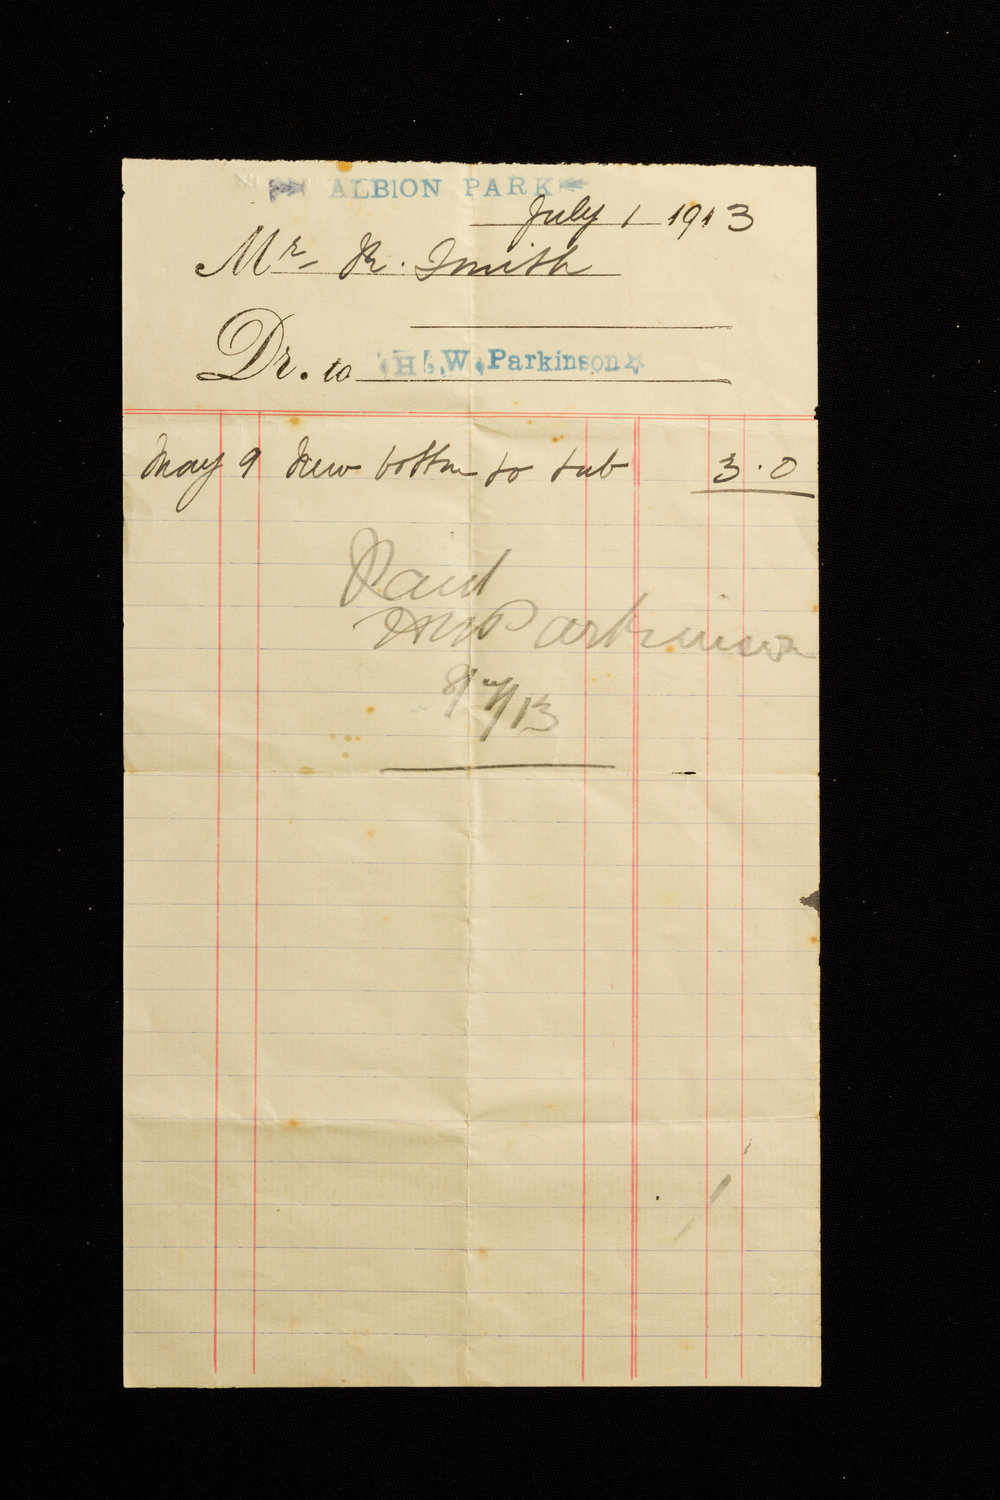 ALBION PARK
July 1 1913
Mr. R. Smith
Dr. to H. W. Parkinson
May 9 New bottom to tub 3.0
Paid
HW Parkinson
8/7/13